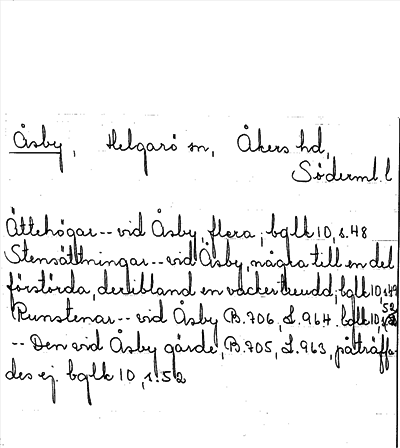 Åsby, Helgarö sn, Åkers hd,
Söderml. l
Ättehögar -- vid Åsby, flera; bglk 10, s. 48
Stensättningar -- vid Åsby, några till en del
förstörda, deribland en vacker treudd; bglk 10, s. 49
Runstenar -- vid Åsby B. 706, L. 964. bglk 10, s. 52
-- Den vid Åsby gärde, B. 705, L. 963, påträffa-
des ej. bglk 10, s. 52